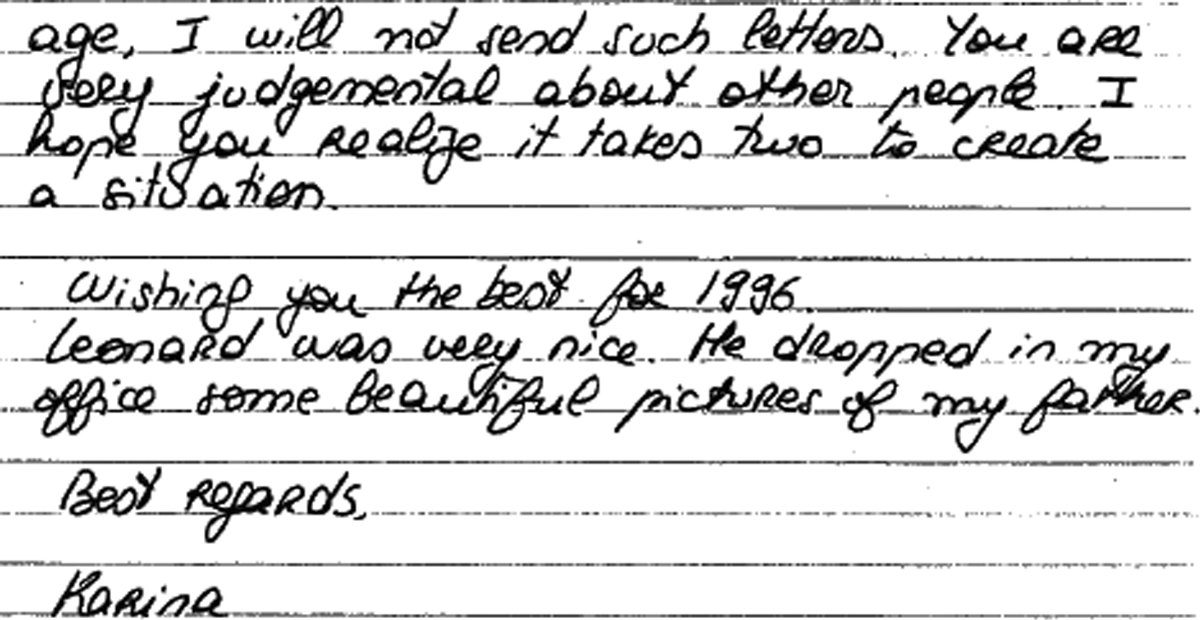 age, I will not send such letters. You are
very judgemental about other people. I
hope you realize it takes two to create
a situation.
Wishing you the best for 1996.
Leonard was very nice. He dropped in my
office some beautiful pictures of my father.
Best regards,
Karina